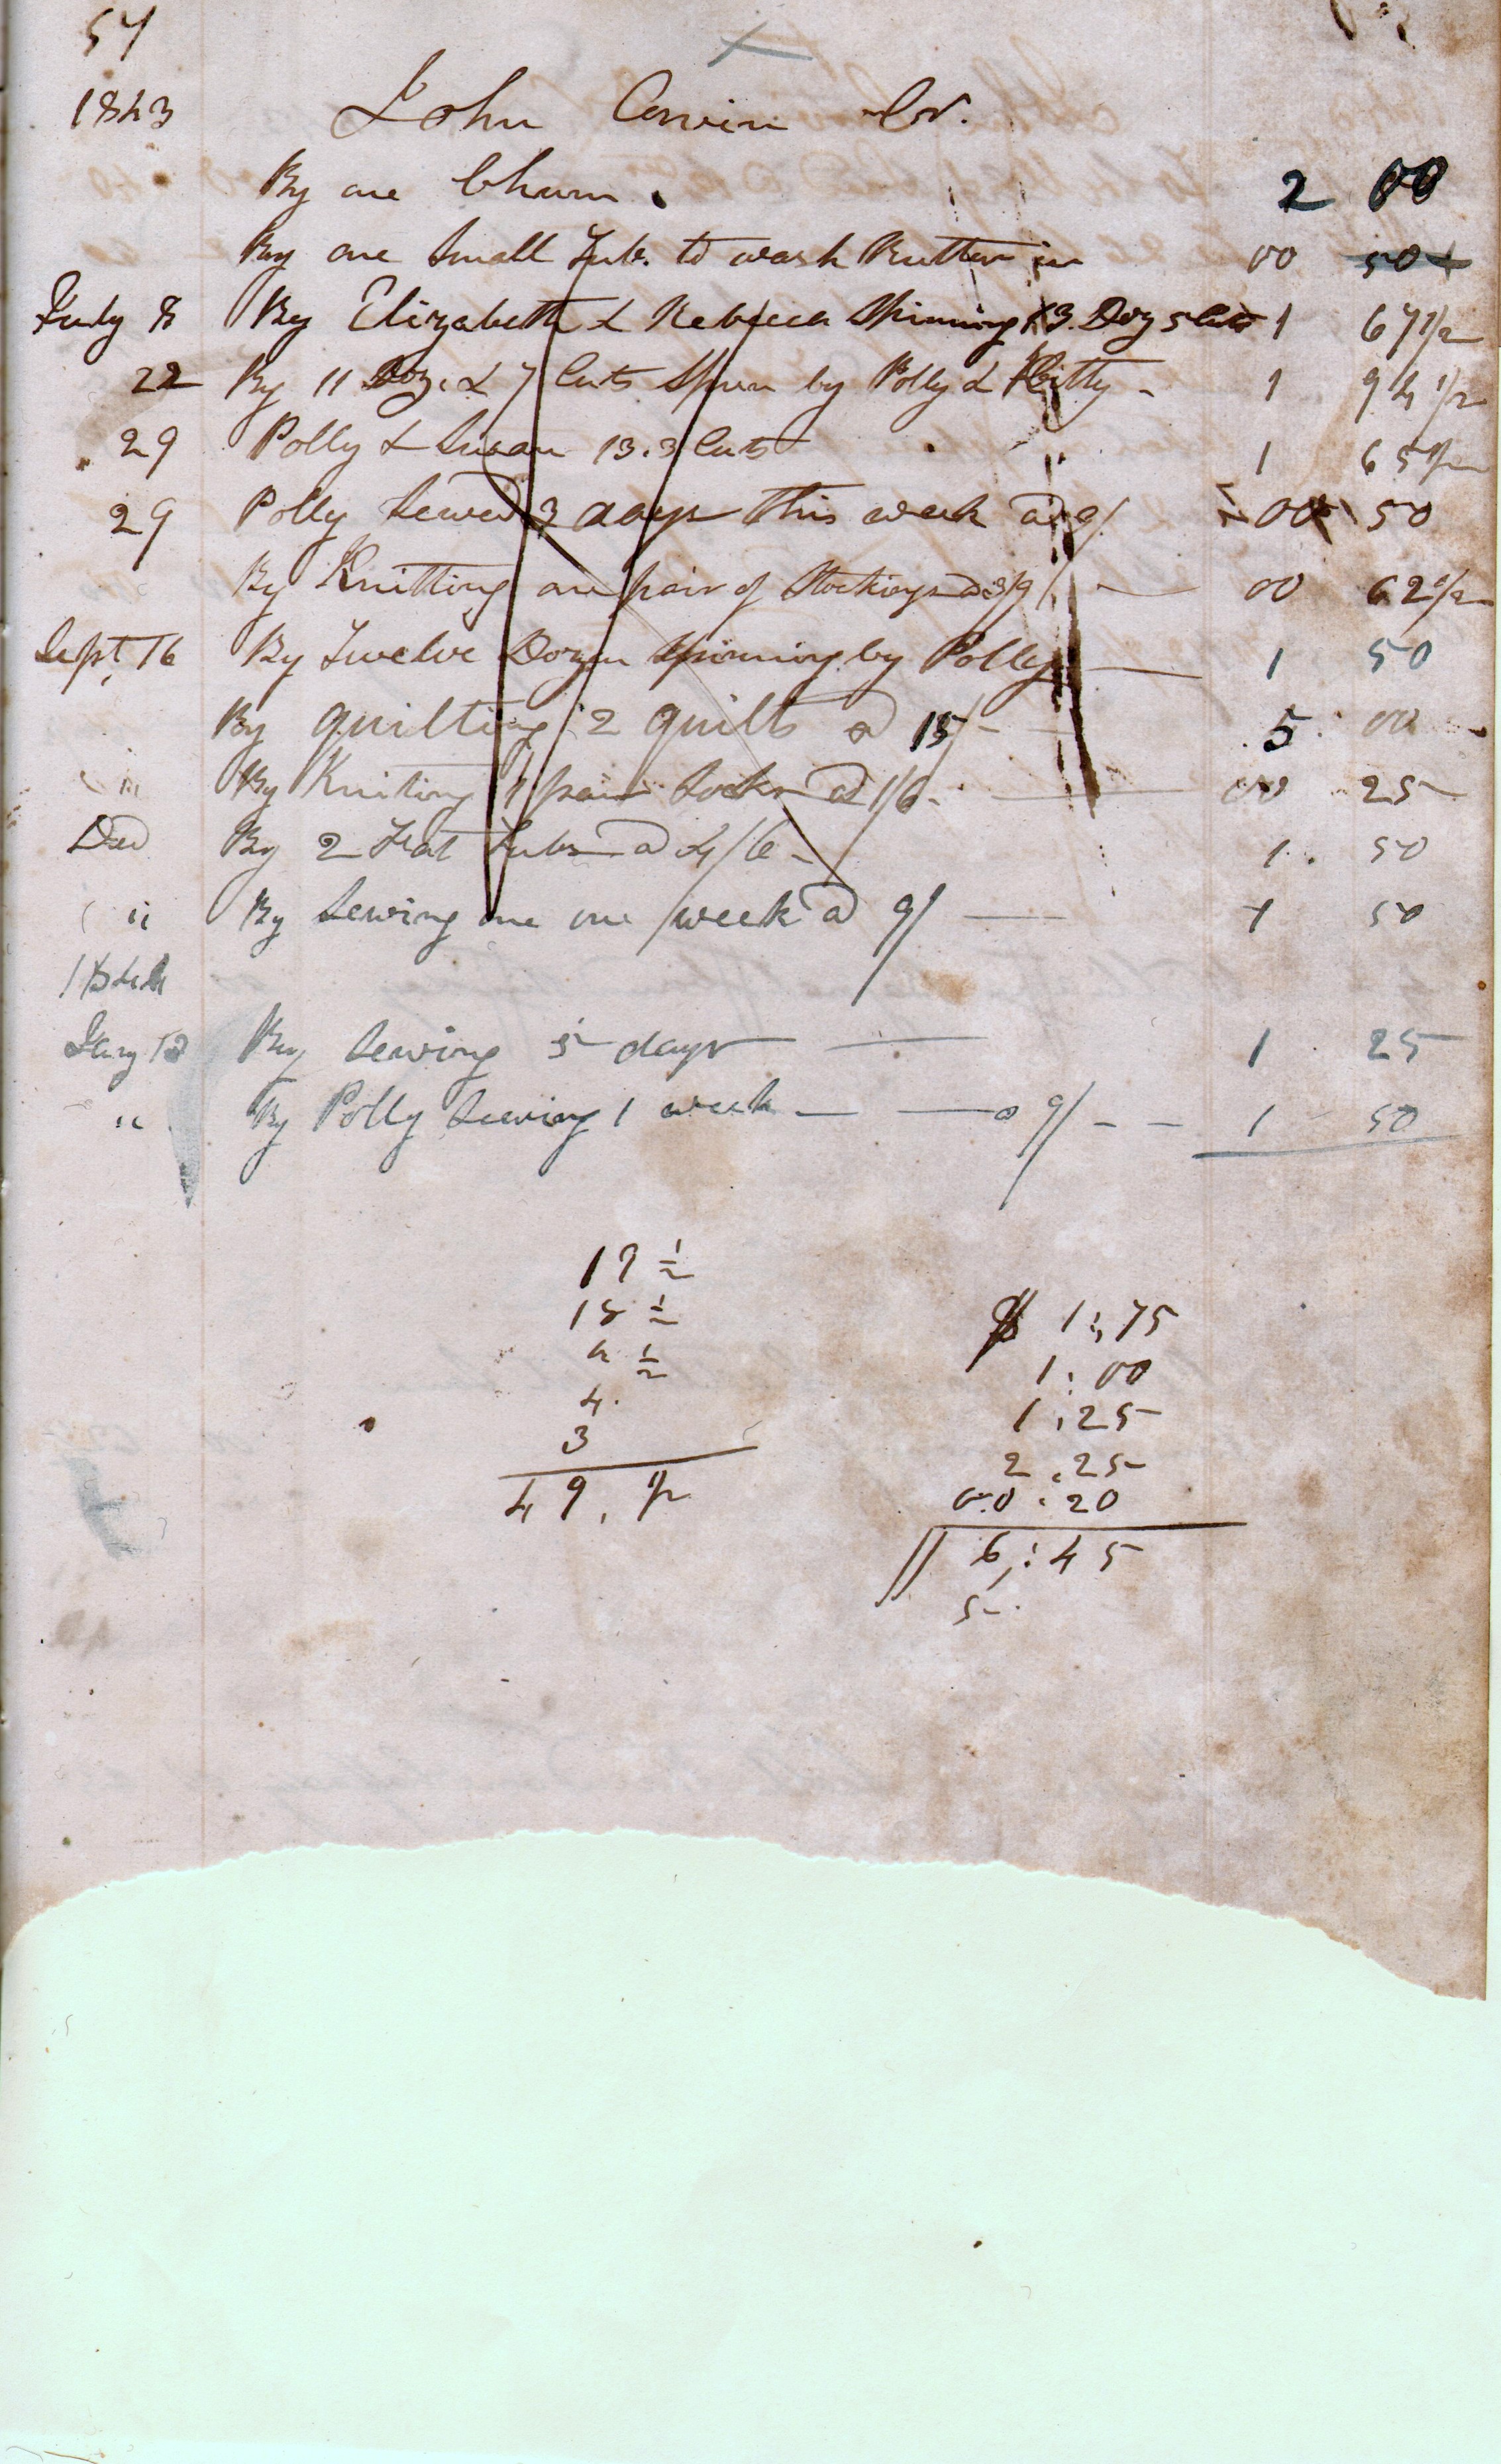 57
1843 John Corwin Cr.
By one Churn. 2 00
By one Small Tub. to wash Butter in 00 50
July 8 By Elizabeth & Rebecca Spinning 13. Doz 5 Cuts 1 67 1/2
22 By 11 Doz. & 7 Cuts Spun by Polly & Kitty - 1 94 1/2
29 Polly & Susan 13.3 Cuts 1 65
29 Polly Sewed 3 days this week 00 50
By Knitting one pair of Stockings 00 62 1/2
Sept 16 By Twelve Dozen Spinning by Polly 1 50
By quilting 2 quilts @ 15/- 5 00
" By Kniting 1 pair Socks @ 1/6- 00 25
Dec By 2 Tubs @ 4/6 - 1. 50
" By Sewing one one week @ 9/ 1 50
1844
Jany 13 By Sewing 5 days 1 25
" By Polly Sewing 1 week @ 9/ - - 1 50
1 1/2 $ 1:75
18 1/2 1:00
1/2 1.25
4. 2.25
3 00:20
49. 1/2 6:45
5-.